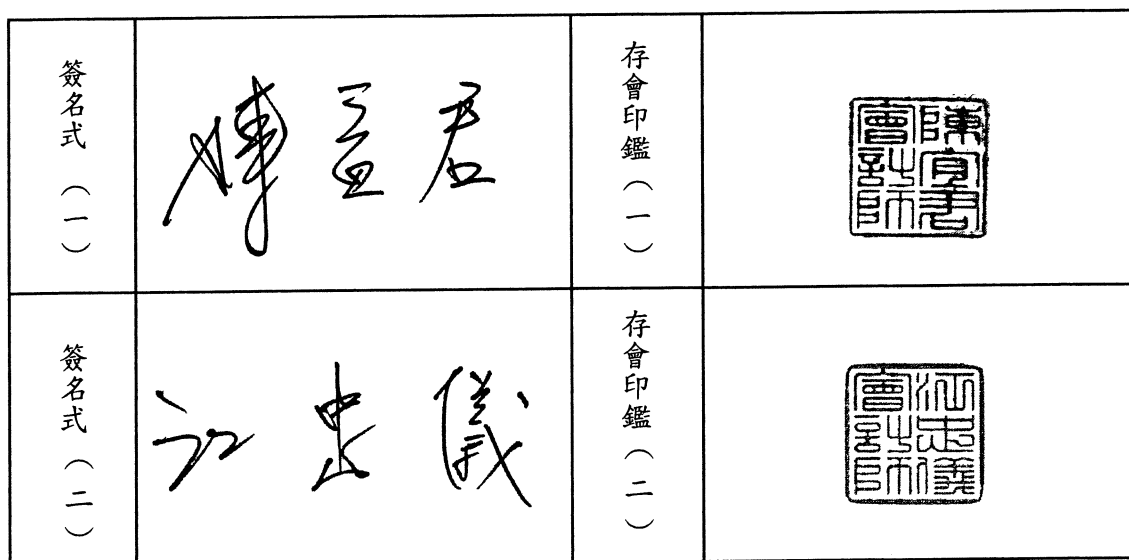 簽名式（一）
陳宜君
存會印鑑（一）
陳宜君
會計師
簽名式（二）
江忠儀
存會印鑑（二）
江忠儀
會計師